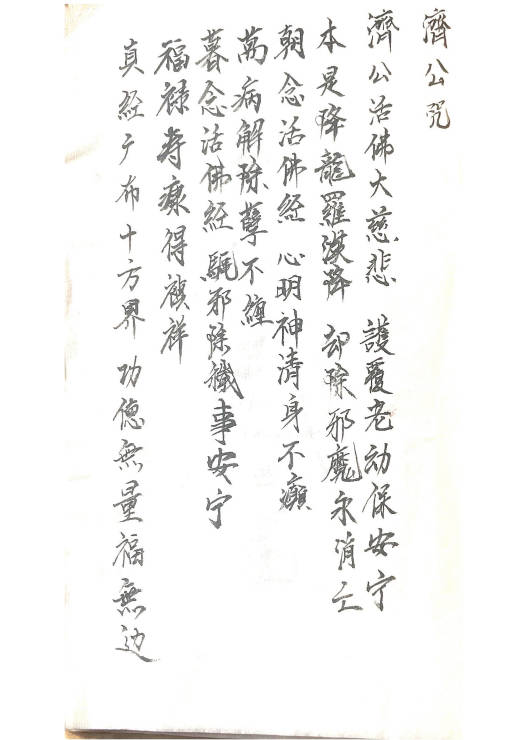 濟公咒
濟公活佛大慈悲 護覆老幼保安宁
本是降龍羅漢降 却除邪魔永消亡
朝念活佛經 心明神清身不癲
萬病解除孽不纏
暮念活佛經 驅邪除穢事安宁
福祿寿康得禎祥
真經广布十方界 功德無量福無边